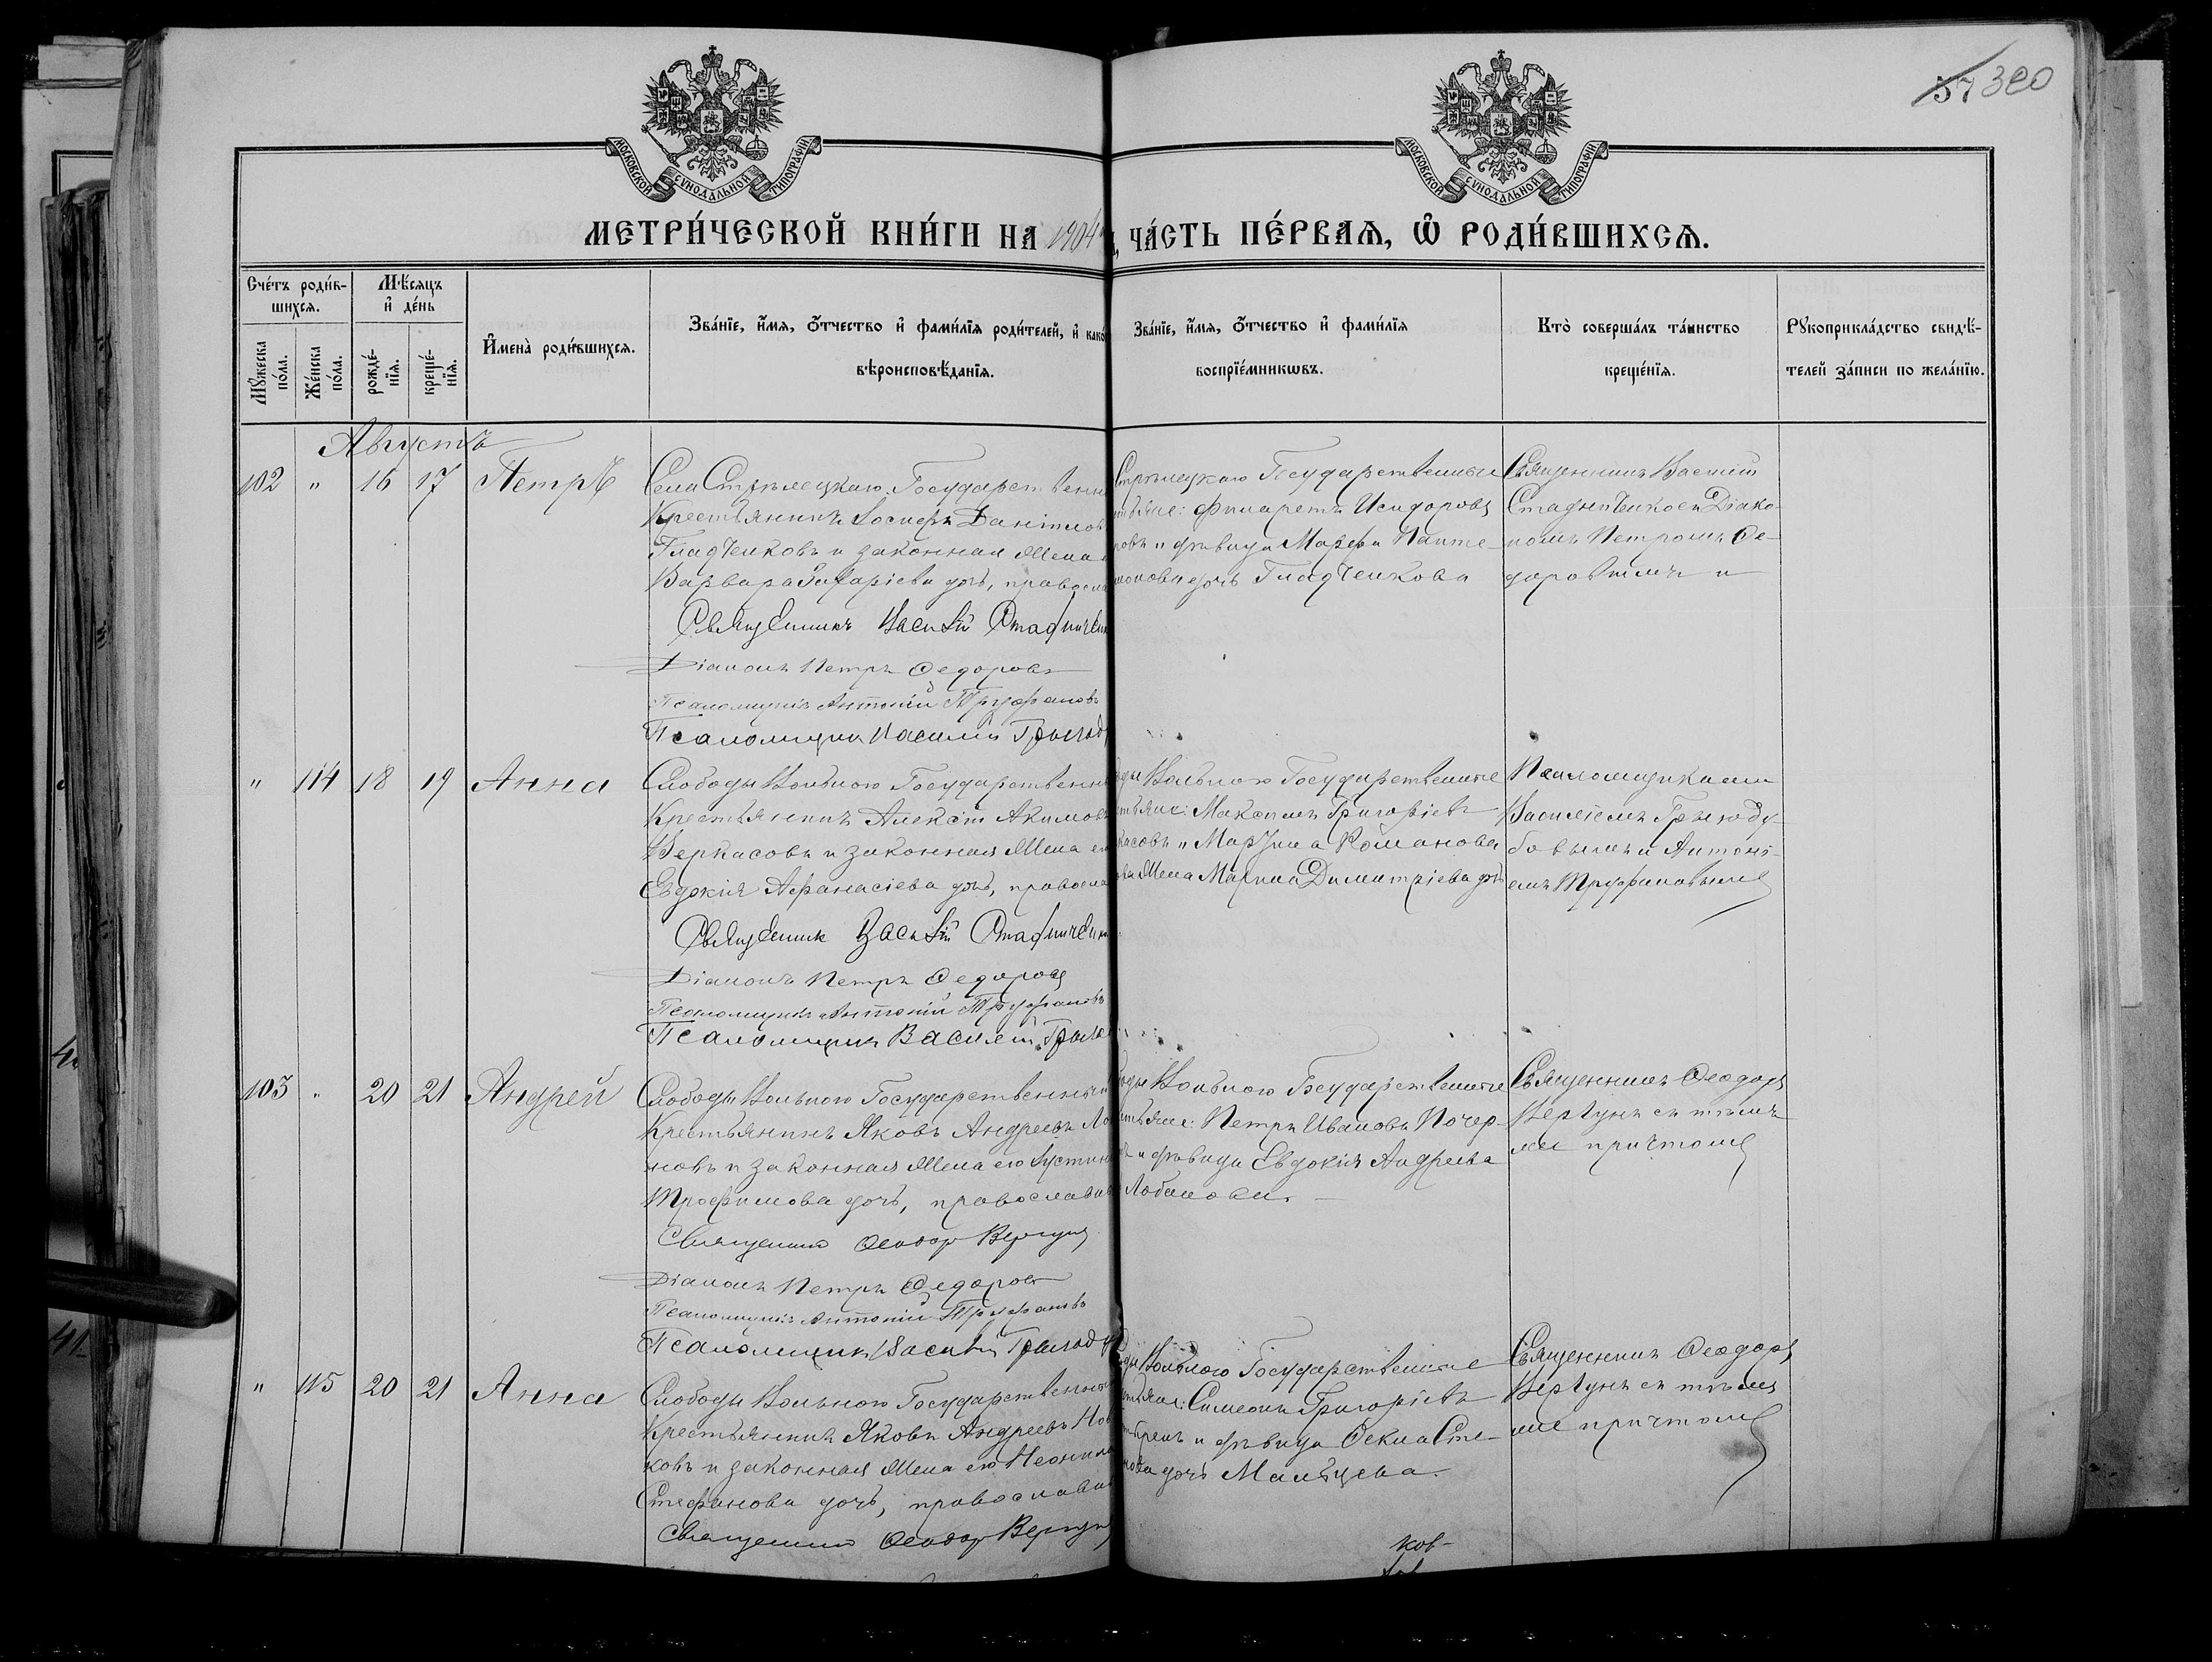 57 320
МОСКОВСКОЙ СУНОДАЛЬНОЙ ТИПОГРАФІИ
МОСКОВСКОЙ СУНОДАЛЬНОЙ ТИПОГРАФІИ
МЕТРИ́ЧЕСКОЙ КНИ́ГИ НА 1904
ЧА́СТЬ ПЕ́РВАѦ, Ѡ РОДИ́ВШИХСѦ.
Сче́тъ роди́в-
шихсѧ.
Мꙋжеска
по́ла.
Же́нска
по́ла.
Мѣ́сяцъ
и҆ де́нь
рожде́-
нїѧ.
креще́-
нїѧ.
И҆мена̀ роди́вшихсѧ.
Зва́нїе, и҆́мѧ, ѻ҆́тчество и҆ фами́лїѧ роди́телей, и҆ како
вѣроисповѣ́данїѧ.
Зва́нїе, и҆́мѧ, ѻ҆́тчество и҆ фами́лїѧ
воспрїе́мникѡвъ.
Кто̀ соверша́лъ та́инство
креще́нїѧ.
Рꙋкоприкла́дство свидѣ́-
телей за́писи по жела́нїю.
Августъ
102 " 16 17 Петръ
Села Стрѣлецкаго Государственн
Крестьянинъ Іосифъ Даніилов
Гладченковъ и законная жена е
Варвара Захаріева дочь, правосла
Священникъ Василій Стадниченк
Діаконъ Петръ Ѳедоровъ
Псаломщикъ Антоній Труфановъ
Псаломщикъ Василій
Стрѣлецкаго Государственные
Филаретъ Исидоровъ
ковъ и дѣвица Марфа Панте-
лимонова дочь Гладченкова
Священникъ Василій
Стадниченко съ Діако-
номъ Петромъ Ѳе-
доровымъ и
" 114 18 19 Анна
Слободы Вольною Государственн
Крестьянинъ Алексій Акимовъ
Черкасовъ и законная жена ег
Евдокія Аѳанасіева дочь, правосла
Священник Василій Стадниченк
Діаконъ Петръ Ѳедоровъ
Псаломщикъ Антоній Труфановъ
Псаломщикъ Василій
Вольною Государственные
Максимъ Григоріевъ
касовъ и Романова
жена Марина Димитріева дочь
Псаломщиками
Василіемъ Грыход-
бовымъ и Антоні-
емъ Труфановымъ
103 " 20 21 Андрей
Слободы Вольною Государственный
Крестьянинъ Яковъ Андреевъ Ло
новъ и законная жена его Іустин
Трофимова дочь, православн
Священникъ Ѳеодоръ Вергунъ
Діаконъ Петръ Ѳедоровъ
Псаломщикъ Антоній Труфановъ
Псаломщикъ Василій
Вольною Государственные
Петръ Ивановъ Почер-
и дѣвица Евдокія Андреева
Лобанова.
Священникъ Ѳеодоръ
Вергунъ съ тѣмъ
же причтомъ
" 115 20 21 Анна
Слободы Вольною Государственный
Крестьянинъ Яковъ Андреевъ Нов
ковъ и законная жена его Неонила
Стефанова дочь, православн
Священникъ Ѳеодоръ Вергунъ
Вольною Государственные
Симеонъ Григоріевъ
и дѣвица Ѳекла Сте-
нова дочь Мальцева.
Священникъ Ѳеодоръ
Вергунъ съ тѣмъ
же причтомъ
ков-